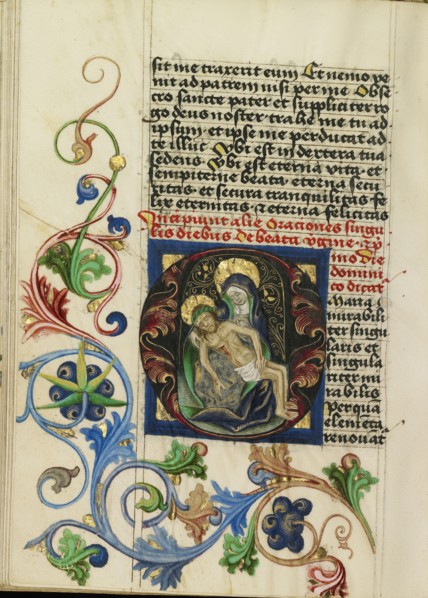 sit me traxerit eum Et nemo ve
nit ad patrem nisi per me Obse
cro sancte pater et suppliciter ro
go deus noster trahe me tu ad
ipsum et ipse me perducat ad
te illuc Vbi est in dextera tua
sedens Vbi est eterna vita et
sempiterne beata eterna secu
ritas et secura tranquilitas fe
lix eternitas et eterna felicitas
Incipiunt alie Oraciones singu
lis diebus de beata vgine
mo die
domini
co dicat
Maria
mirabili
ter singu
laris et
singula
riter mi
rabilis
per qua
elemeta
renovat